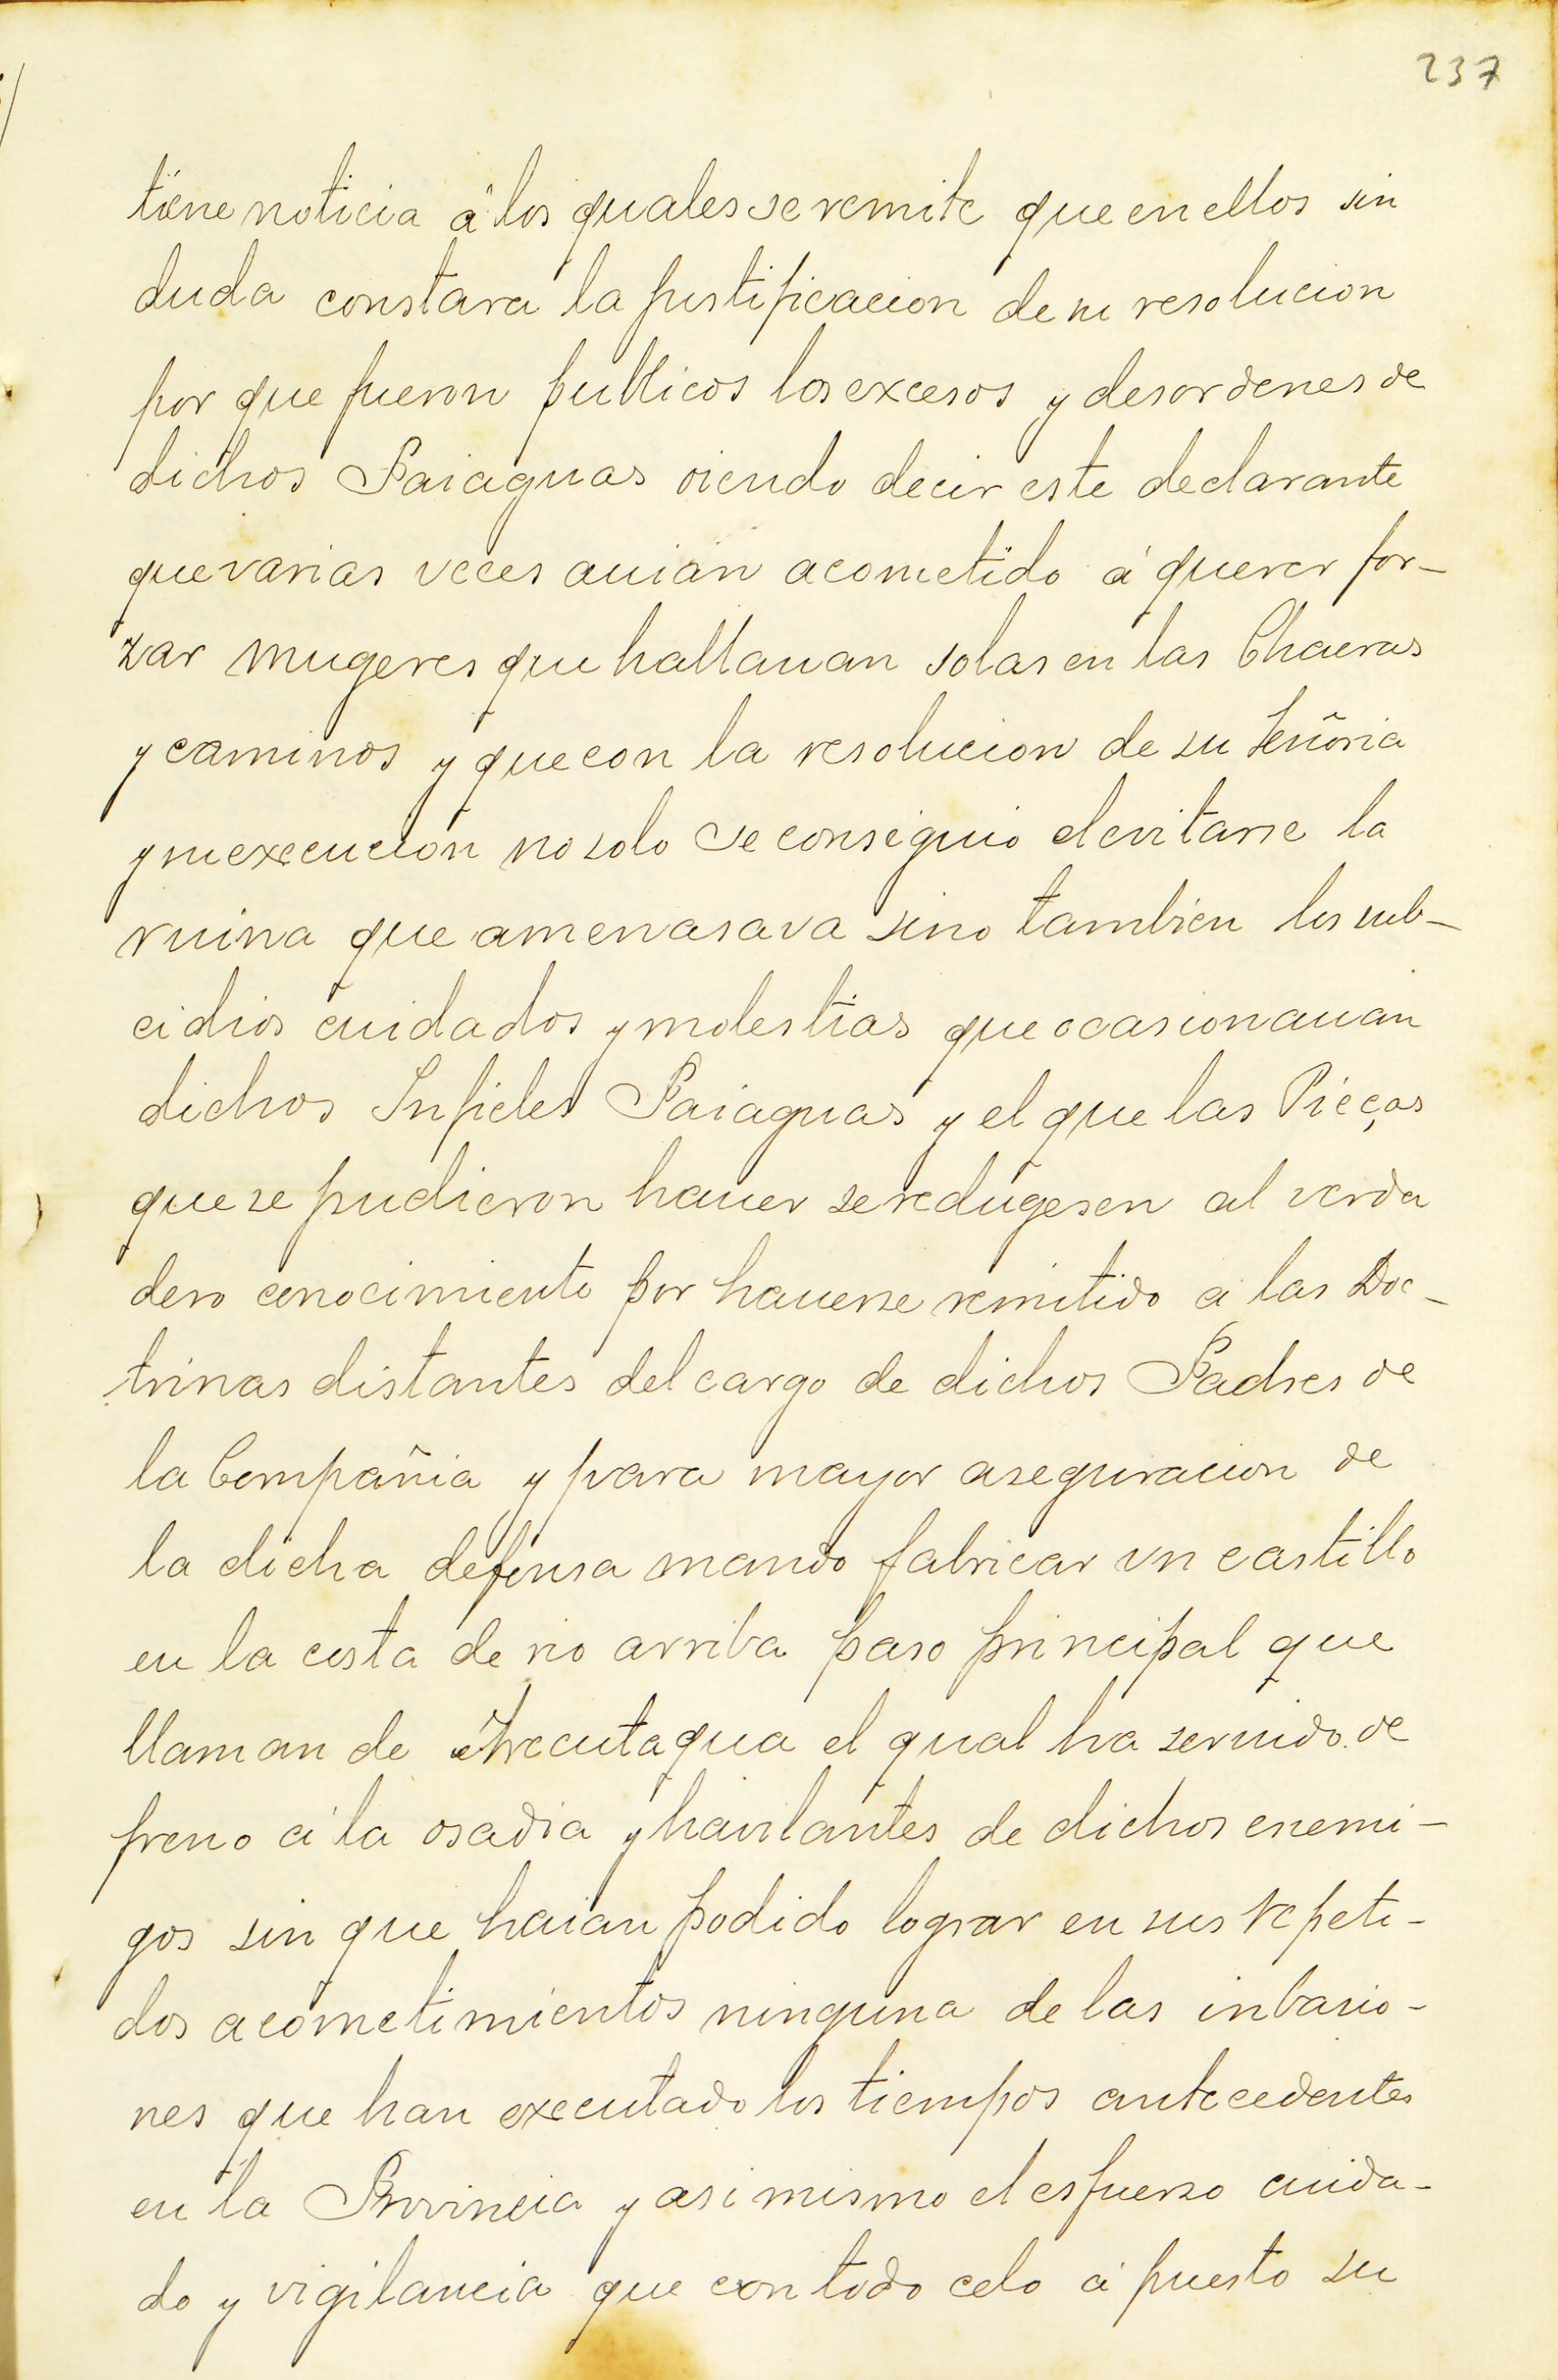 237
tiene noticia á los quales se remite que en ellos sin
duda constara la justificacion de su resolucion
por que fueron publicos los excesos y desordenes de
dichos Paiaguas oiendo decir este declarante
que varias veces auian acometido á querer for-
zar mugeres que hallauan solas en las Chacras
y caminos y que con la resolucion de su Señoria
y su execucion no solo se consiguio el evitarse la
ruina que amenasava sino tambien los sub-
cidios cuidados y molestias que ocasionauan
dichos Infieles Paiaguas y el que las Pieças
que se pudieron hauer se redugesen al verda
dero conocimiento por hauerse remitido á las Doc-
trinas distantes del cargo de dichos Padres de
la Compañia y para mayor aseguracion de
la dicha defensa mando fabricar vn castillo
en la costa de rio arriba paso principal que
llaman de Arecutagua el qual ha seruido de
freno á la osadia y havilantes de dichos enemi-
gos sin que haian podido lograr en sus repeti-
dos acometimientos ninguna de las inbasio-
nes que han executado los tiempos antecedentes
en la Provincia y asi mismo el esfuerso cuida-
do y vigilancia que con todo celo á puesto su